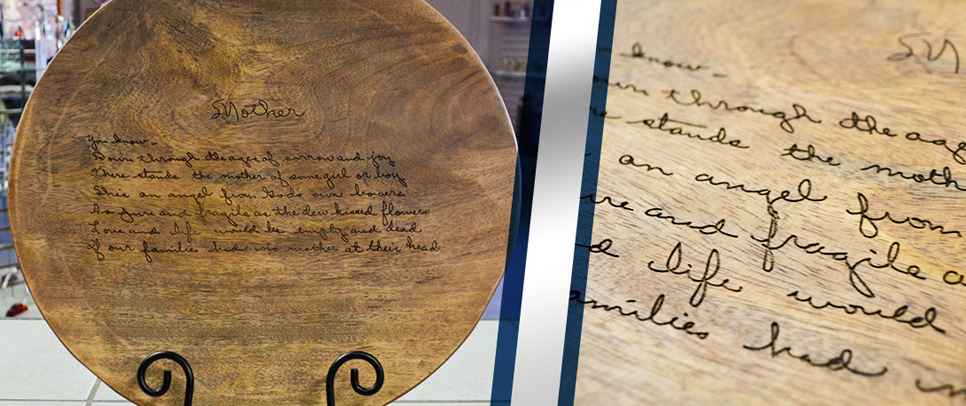 Mother
You know -
Down through the ages of sorrow and joy
There stands the mother of some girl or boy
She's an angel from God's own bowers
As pure and fragile as the dew kissed flowers
Love and life would be empty and dead
if our families had no mother at their head
SM
know -
wn through the age
re stands the moth
an angel from
ure and fragile a
d life would
amilies had